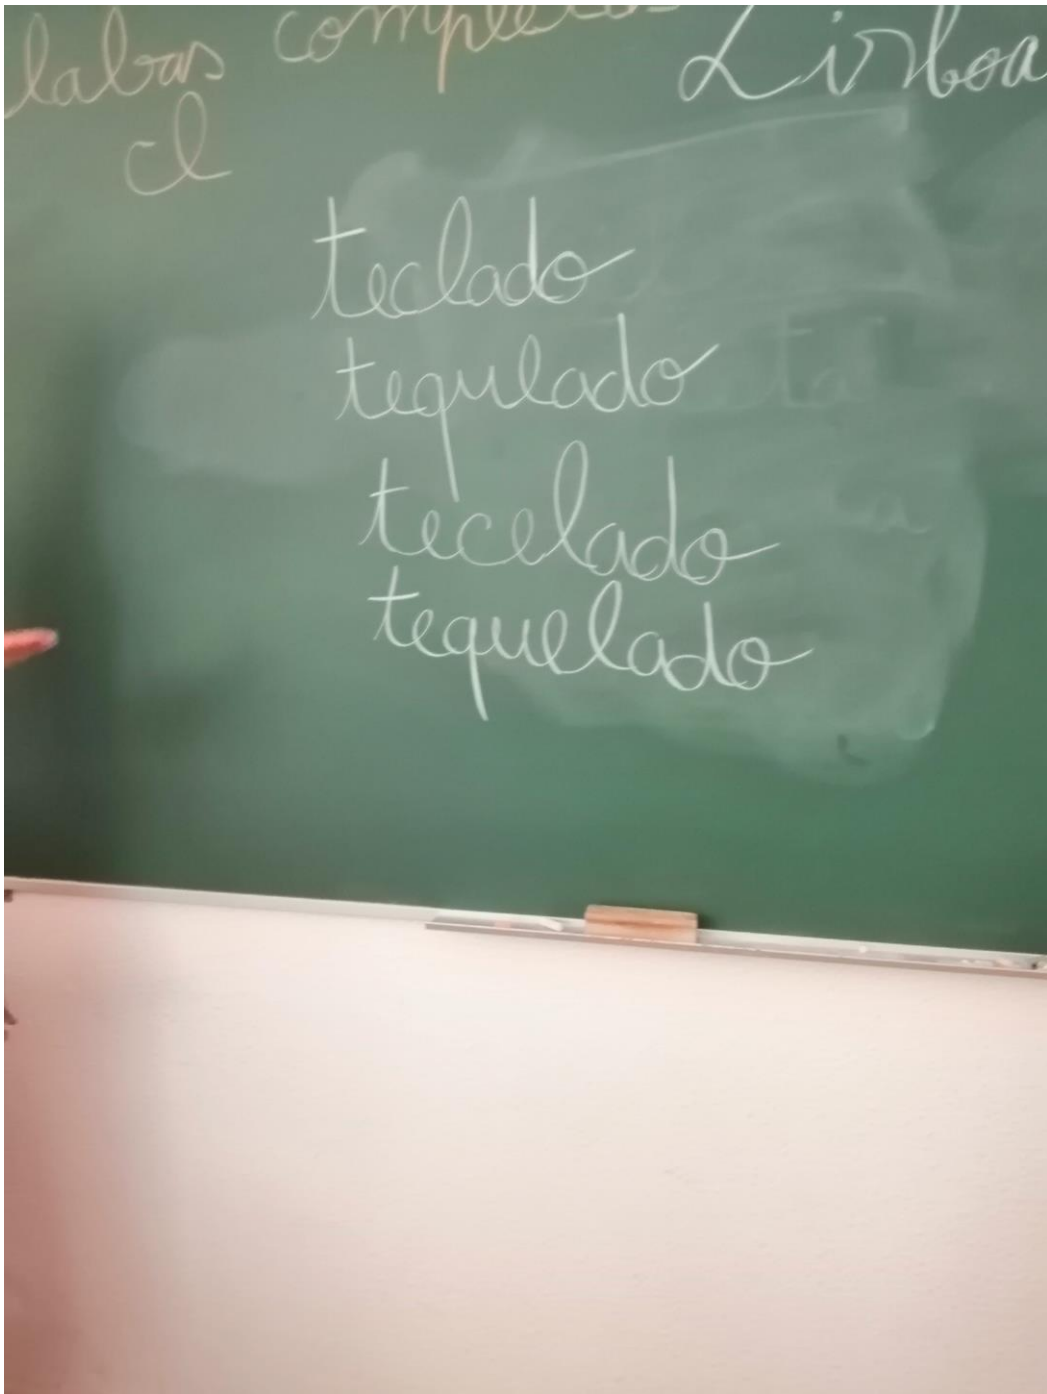 labas comple Lisboa
cl
teclado
tequlado
tecelado
tequelado